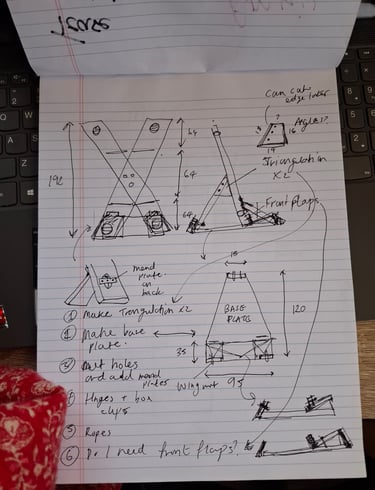 Can cut
edge later
?
Angle??
16
19
64
192
64
64
Triangulation
x2
Front flaps
mend
plate
on
back
18
① Make Triangulation x2
Make base
plate.
BASE
PLATE
120
35
③ Cut holes
and add mend
plates
Wingnut
95
Hinges + box
clips
⑤ Ropes
⑥ Do I need front flaps?